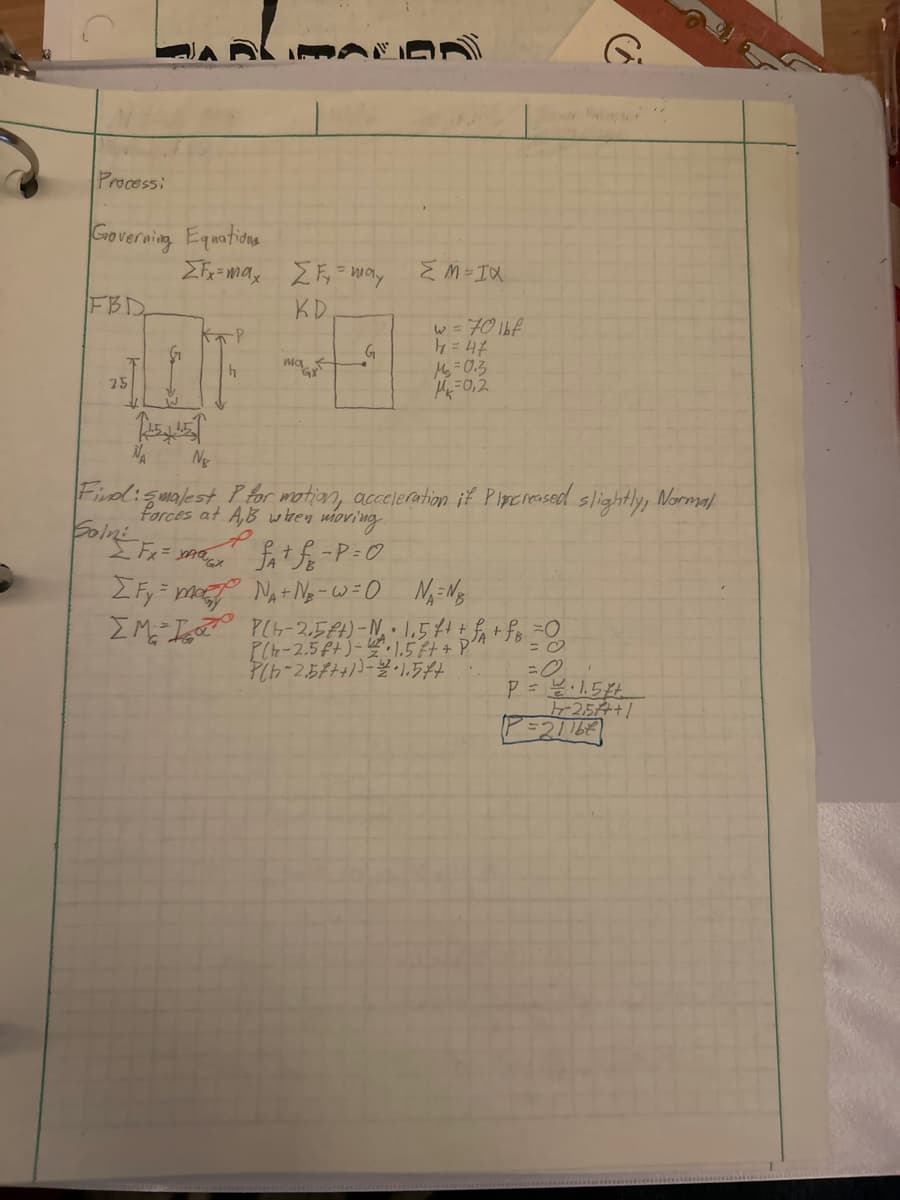 Process:
Governing Equations
ΣFx=max ΣFy=may ΣM=Iα
FBD KD
P
w=70 lbf
G G
h=4f
maGx
h
μs=0.3
2.5
μk=0.2
w
1.5 1.5
NA NB
Find: smalest P for motion, acceleration if P increased slightly, Normal
forces at A,B when moving
Soln:
ΣFx=maGx 0 fA+fB-P=0
ΣFy=maGy 0 NA+NB-w=0 NA=NB
ΣMG=IGα 0 P(h-2.5ft)-NA·1.5ft+fA+fB=0
P(h-2.5ft)-w/2·1.5ft+P =0
P(h-2.5ft+1)-w/2·1.5ft =0
P = w/2·1.5ft
h-2.5ft+1
P=21 lbf